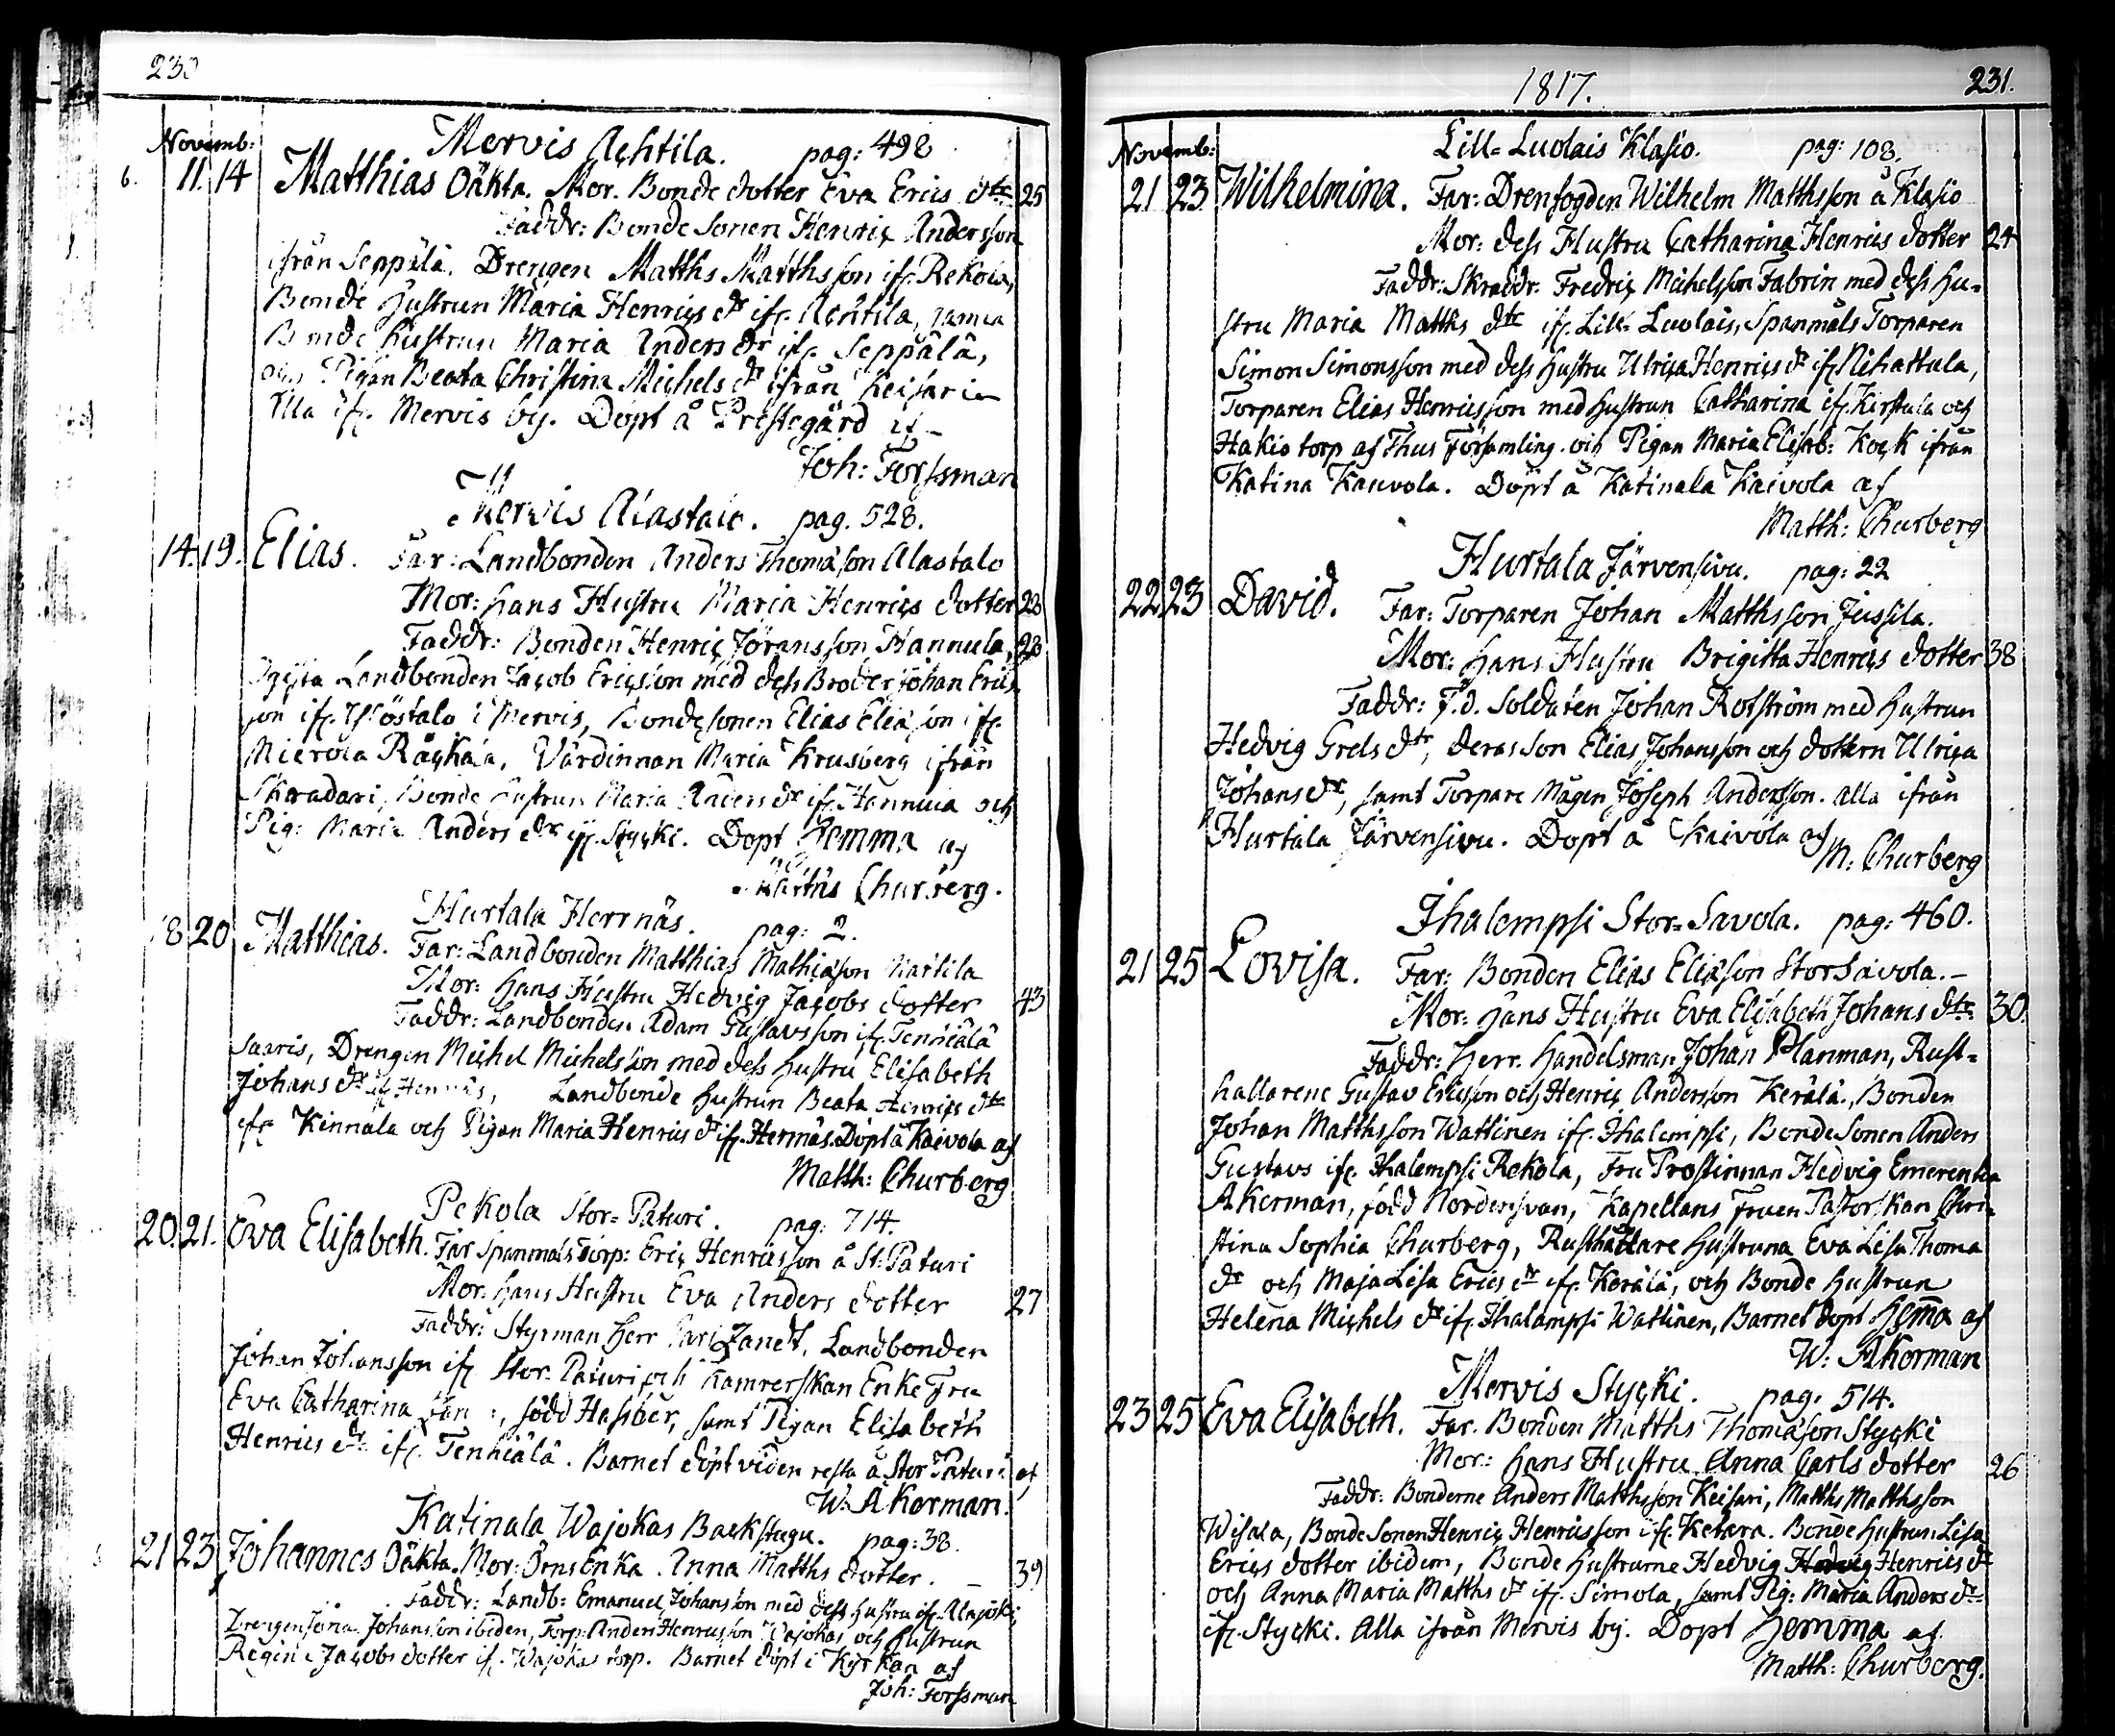 230
Novemb:
Mervis Achtila. pag: 498
6. 11. 14 Matthias Oäkta. Mor. Bonde dotter Eva Erics dtr 25
Faddr: Bonde Sonen Henric Andersson
ifrån Seppälä. Drengen Matths Matthsson ifr. Rekola,
Bonde Hustrun Maria Henrics dr ifr. Achtila, samma
Bonde Hustrun Maria Anders dr ifr. Seppälä,
och Pigan Beata Christina Michels dr ifrån Keisari
alla ifr. Mervis by. Döpt å Prestegård af
Joh: Forssman
Mervis Alastalo. pag. 528.
14. 19. Elias. Far: Landbonden Anders Thomasson Alastalo
Mor: hans Hustru Maria Henrics dotter 23
Faddr: Bonden Henric Jöransson Hannula, 23
Landbonden Jacob Ericsson med dess Broder Johan Erics
son ifr. Ylöstalo i Mervis, Bondesonen Elias Eliasson ifr.
Mierola Räckälä, Värdinnan Maria Krusberg ifrån
Skradari, Bonde Hustrun Maria Anders dr ifr. Hannula och
Pig: Maria Anders dr ifr. Stycki. Döpt Hemma af
Matths Churberg.
Hurtala Herrnäs. pag: 2.
18 20 Matthias. Far: Landbonden Matthias Mathiasson Martila
Mor: hans Hustru Hedvig Jacobs dotter 43
Faddr: Landbonden Adam Gustavsson ifr. Tenhiälä
Saaris, Drengen Michel Michelsson med dess hustru Elisabeth
Johans dr ifr. Hernäs, Landbonde hustrun Beata Henrics dtr
ifr. Kinnala och Pigan Maria Henrics dr ifr. Hernäs. Döpt å Kaivola af
Matth: Churberg
Pekola Stor=Paturi. pag: 714.
20. 21. Eva Elisabeth. Far Spanmåls Torp: Eric Henricsson å St: Paturi
Mor: hans Hustru Eva Anders dotter 27
Faddr: Styrman Herr Carl Zandt, Landbonden
Johan Johansson ifr. Stor-Paturi och Kamrerskan Enke Fru
Eva Catharina, född Hasiber, samt Pigan Elisabeth
Henrics dr ifr. Tenhiälä. Barnet döpt viden resa å Stor Paturi af
W: Åkerman.
Katinala Wajokas Backstugu. pag: 38.
21 23 Johannes Oäkta. Mor: Örns Enka. Anna Matths dotter. 39
Faddr: Landb: Emanuel Johansson med dess hustru ifr. Alajoki,
Drengen Jona Johansson ibidem, Torp: Anders Henricsson Wajokas och hustrun
Regina Jacobs dotter ifr. Wajokas torp. Barnet döpt i Kyrkan af
Joh: Forssman
1817. 231.
Novemb:
Lill=Luolais Klasio. pag: 108.
21 23 Wilhelmina. Far: Drenfogden Wilhelm Matthsson å Klasio
Mor: dess Hustru Catharina Henrics dotter 24
Faddr: Skraddr. Fredric Michelsson Fabrin med dess Hu=
stru Maria Matths dtr ifr. Lill-Luolais, Spanmåls Torparen
Simon Simonsson med dess hustru Ulrica Henrics dr ifr. Nihattula,
Torparen Elias Henricsson med hustrun Catharina ifr. Kirstula och
Hakio torp af Thus Församling. och Pigan Maria Elisab: Kock ifrån
Katina Kauvola. Döpt å Katinala Kaivola af
Matth: Churberg
Hurtala Järvensivu. pag: 22
22 23 David. Far: Torparen Johan Matthsson Jussila.
Mor: hans Hustru Brigitta Henrics dotter 38
Faddr: F.d. Soldaten Johan Rotström med hustrun
Hedvig Grels dtr, deras son Elias Johansson och dottern Ulrica
Johans dr, samt Torpare Mågen Joseph Andersson. alla ifrån
Hurtala Järvensivu. Döpt å Kaivola af
M: Churberg
Ihalempsi Stor=Savola. pag: 460.
21 25 Lovisa. Far: Bonden Elias Eliasson Storsavola.–
Mor: hans Hustru Eva Elisabeth Johans dtr 30.
Faddr: Herr. Handelsman Johan Planman, Rust=
hallarene Gustav Ericsson och Henric Andersson Kerälä, Bonden
Johan Matthsson Wattinen ifr. Ihalempsi, Bonde Sonen Anders
Gustavs ifr. Ihalempsi Rekola, Fru Prostinnan Hedvig Emerentia
Åkerman, född Nordensvan, Kapellans Fruen Pastorskan Chri=
stina Sophia Churberg, Rusthållare Hustruna Eva Lisa Thoma
dr och Maja Lisa Erics dr ifr. Kerälä, och Bonde hustrun
Helena Michels dr ifr. Ihalampsi Wattinen, Barnet döpt Hema af
W: Åkerman
Mervis Stycki. pag: 514.
23 25 Eva Elisabeth. Far. Bonden Matths Thomasson Stycki
Mor: hans Hustru Anna Carls dotter 26
Faddr: Bonderne Anders Matthsson Keisari, Matths Matthsson
Wisala, Bonde Sonen Henric Henricsson ifr. Ketara. Bonde hustrun Lisa
Erics dotter ibidem, Bonde hustrurne Hedvig Hedvig Henrics dr
och Anna Maria Matths dr ifr. Simola, samt Pig: Maria Anders dr
ifr. Stycki. Alla ifrån Mervis by. Döpt Hemma af
Matth: Churberg.